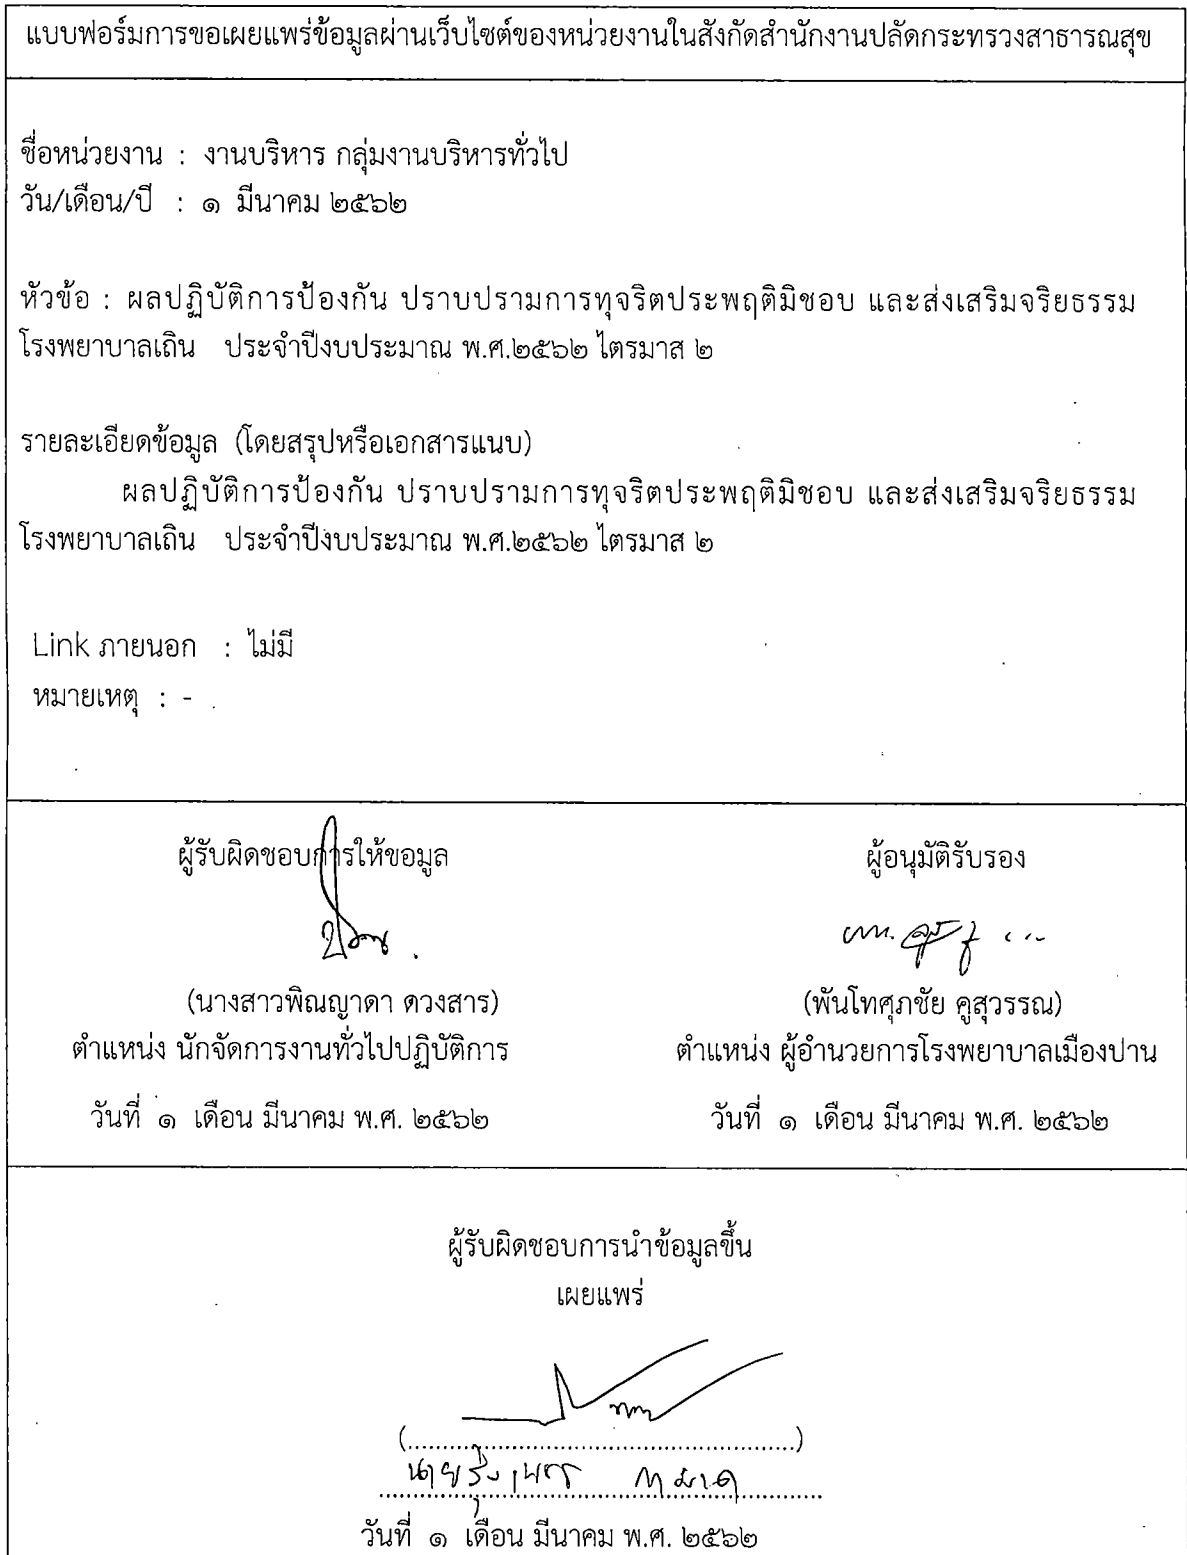 แบบฟอร์มการขอเผยแพร่ข้อมูลผ่านเว็บไซต์ของหน่วยงานในสังกัดสำนักงานปลัดกระทรวงสาธารณสุข
ชื่อหน่วยงาน : งานบริหาร กลุ่มงานบริหารทั่วไป
วัน/เดือน/ปี : ๑ มีนาคม ๒๕๖๒
หัวข้อ : ผลปฏิบัติการป้องกัน ปราบปรามการทุจริตประพฤติมิชอบ และส่งเสริมจริยธรรม
โรงพยาบาลเถิน ประจำปีงบประมาณ พ.ศ.๒๕๖๒ ไตรมาส ๒
รายละเอียดข้อมูล (โดยสรุปหรือเอกสารแนบ)
ผลปฏิบัติการป้องกัน ปราบปรามการทุจริตประพฤติมิชอบ และส่งเสริมจริยธรรม
โรงพยาบาลเถิน ประจำปีงบประมาณ พ.ศ.๒๕๖๒ ไตรมาส ๒
Link ภายนอก : ไม่มี
หมายเหตุ : -
ผู้รับผิดชอบการให้ขอมูล
(นางสาวพิณญาดา ดวงสาร)
ตำแหน่ง นักจัดการงานทั่วไปปฏิบัติการ
วันที่ ๑ เดือน มีนาคม พ.ศ. ๒๕๖๒
ผู้อนุมัติรับรอง
(พันโทศุภชัย คูสุวรรณ)
ตำแหน่ง ผู้อำนวยการโรงพยาบาลเมืองปาน
วันที่ ๑ เดือน มีนาคม พ.ศ. ๒๕๖๒
ผู้รับผิดชอบการนำข้อมูลขึ้น
เผยแพร่
(......................................................)
วันที่ ๑ เดือน มีนาคม พ.ศ. ๒๕๖๒